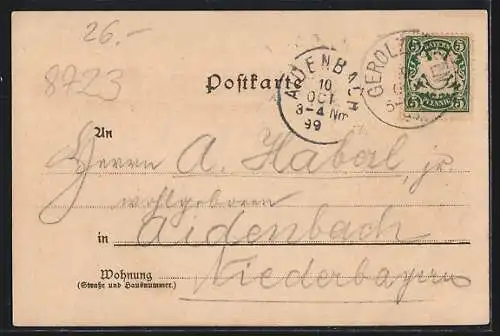 26.-
8723
Postkarte
AIDENBACH
10
OCT.
3-4 Nm
99
GEROLZ
BAYERN
5 5
5 PFENNIG 5
An
Herrn A. Haberl, jr.
wohlgeboren
in Aidenbach
Wohnung Niederbayern
(Straße und Hausnummer.)